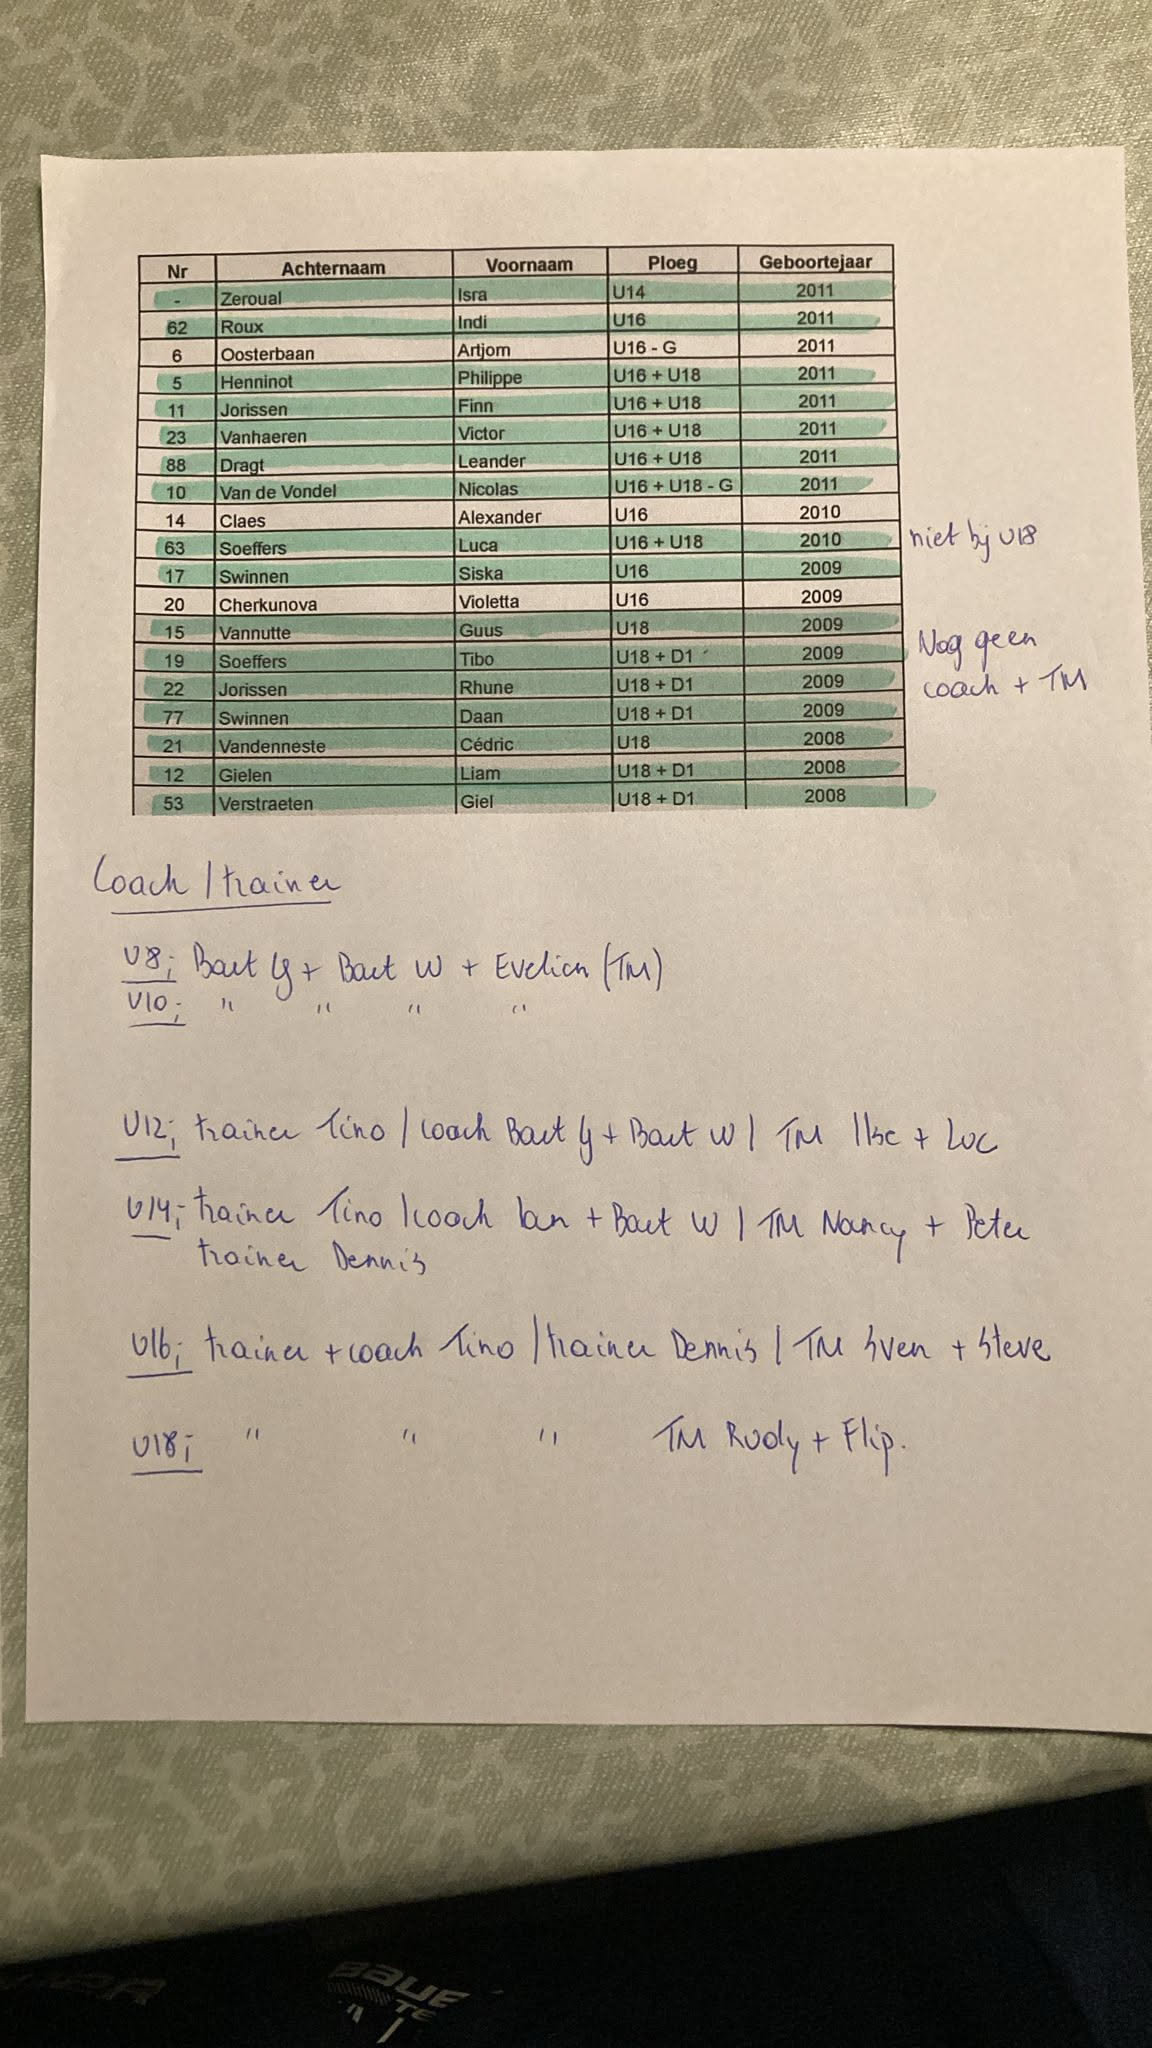 Nr Achternaam Voornaam Ploeg Geboortejaar
- Zeroual Isra U14 2011
62 Roux Indi U16 2011
6 Oosterbaan Artjom U16 - G 2011
5 Henninot Philippe U16 + U18 2011
11 Jorissen Finn U16 + U18 2011
23 Vanhaeren Victor U16 + U18 2011
88 Dragt Leander U16 + U18 2011
10 Van de Vondel Nicolas U16 + U18 - G 2011
14 Claes Alexander U16 2010
63 Soeffers Luca U16 + U18 2010 niet bij U18
17 Swinnen Siska U16 2009
20 Cherkunova Violetta U16 2009
15 Vannutte Guus U18 2009
19 Soeffers Tibo U18 + D1 2009 Nog geen
22 Jorissen Rhune U18 + D1 2009 coach + TM
77 Swinnen Daan U18 + D1 2009
21 Vandenneste Cédric U18 2008
12 Gielen Liam U18 + D1 2008
53 Verstraeten Giel U18 + D1 2008
Coach / trainer
U8; Bart G + Bart W + Evelien (TM)
U10; " " " "
U12; trainer Tino / coach Bart G + Bart W / TM Ilse + Luc
U14; trainer Tino / coach + Bart W / TM Nancy + Peter
trainer Dennis
U16; trainer + coach Tino / trainer Dennis / TM Sven + Steve
U18; " " " TM Rudy + Flip.
BAUE
TE